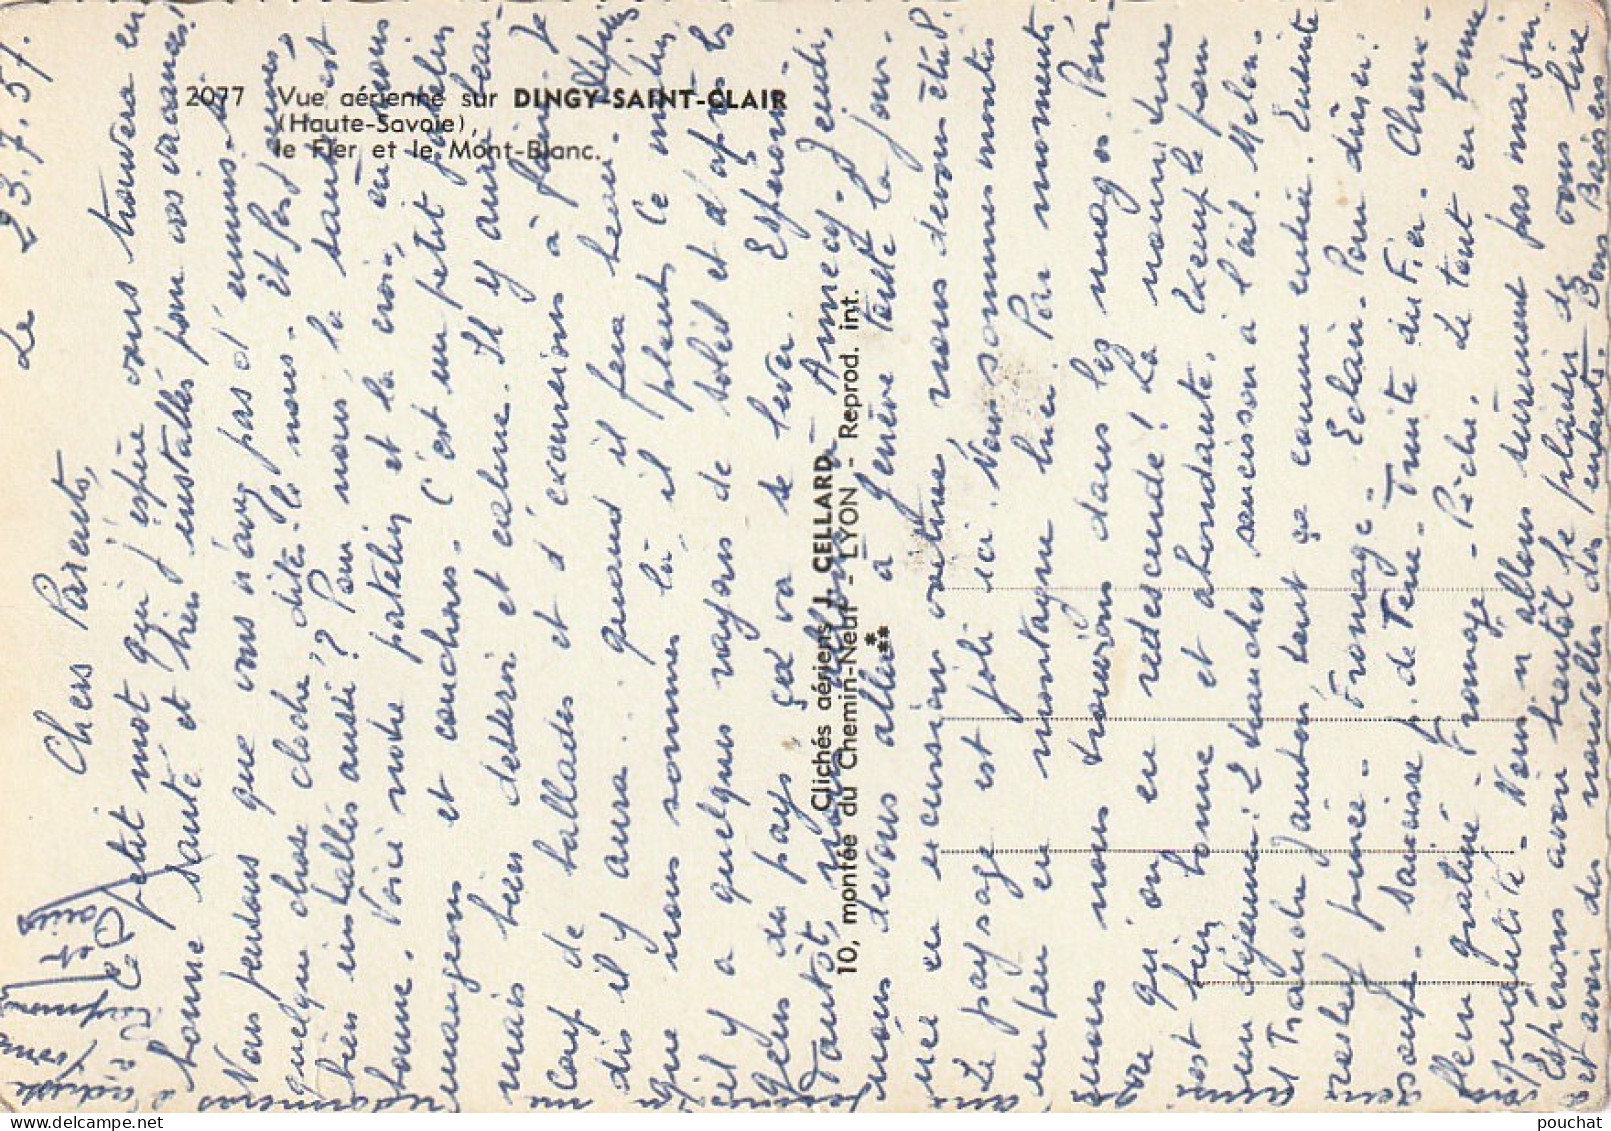 2077 Vue aérienne sur DINGY-SAINT-CLAIR
(Haute-Savoie),
le Fier et le Mont-Blanc.
Clichés aériens J. CELLARD
10, montée du Chemin-Neuf - LYON - Reprod. int.
**
*
Le 23.7.57.
Chers Parents,
petit mot qui j'espère vous trouvera en
bonne santé et bien installés pour vos vacances!
Nous pensons que vous n'avez pas d'ennuis. Si
quelque chose cloche, dites-le nous. Et les jeunes,
bien installés aussi? Pour nous, la santé est
bonne. Voici notre patelin et la croix, où nous
mangeons et couchons. C'est un petit patelin
mais bien desservi et calme. Il y aura beau-
coup de ballades et d'excursions à faire. Je
dis il y aura.. quand il fera beau. Depuis
que nous sommes là, il pleut. Ce matin
il y a quelques rayons de soleil et d'après les
gens du pays ça va se lever. Espérons-
Tantôt, Annecy. Jeudi,
nous devons aller à Genève toute la jour-
née en excursion
Le paysage est joli ici. Nous sommes montés
un peu en montagne hier. Par moments
nous nous trouvions dans les nuages.
qu'on en redescende! La nourriture
est bien bonne et abondante. Exemple pour
un déjeuner: 2 tranches saucisson à l'ail. Melon.
et Tranche Jambon
rosbeef purée - Fromage - Eclair. Pour dîner:
soupe - Saucisse p. de Terre - Truite du Fier - Chou-
fleur gratiné - Fromage - Pêche. Le tout en bonne
quantité - Nous n'allons sûrement pas maigrir.
Espérons avoir bientôt le plaisir de vous lire
et avoir des nouvelles des enfants. Bons Baisers